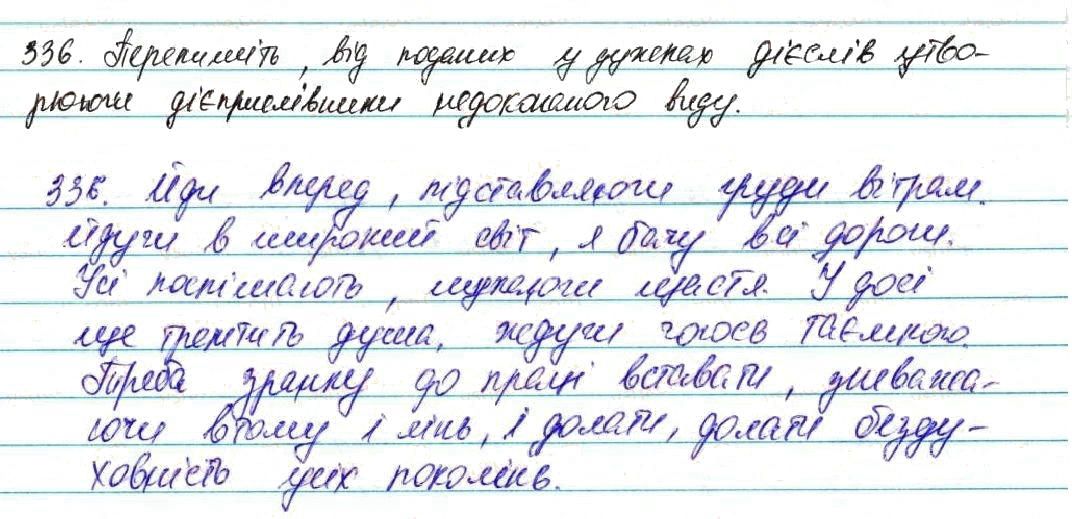 336. Перепишіть, від поданих у дужках дієслів утво-
рюючи дієприслівники недоконаного виду.
336. Йди вперед, підставляючи груди вітрам.
Йдучи в широкий світ, я бачу всі дороги.
Усі поспішають, шукаючи щастя. У досі
ще тремтить душа, ждучи голосів таємного.
Треба зранку до праці вставати, зневажа-
ючи втому і лінь, і долати, долати безду-
ховність усіх поколінь.